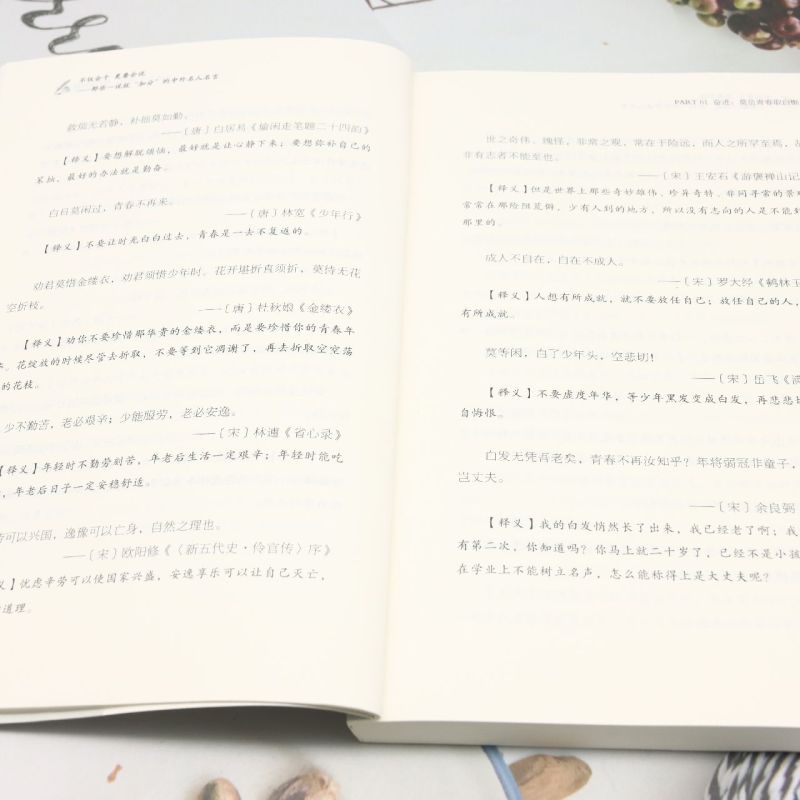 不仅会干 更要会说
——那些一说就“加分”的中外名人名言
救烦无若静，补拙莫如勤。
——〔唐〕白居易《偷闲走笔题二十四韵》
【释义】要想解脱烦恼，最好就是让心静下来；要想弥补自己的
笨拙，最好的办法就是勤奋。
白日莫闲过，青春不再来。
——〔唐〕林宽《少年行》
【释义】不要让时光白白过去，青春是一去不复返的。
劝君莫惜金缕衣，劝君须惜少年时。花开堪折直须折，莫待无花
空折枝。
——〔唐〕杜秋娘《金缕衣》
【释义】劝你不要珍惜那华贵的金缕衣，而是要珍惜你的青春年
华。花绽放的时候尽管去折取，不要等到它凋谢了，再去折取空空荡
的花枝。
少不勤苦，老必艰辛；少能服劳，老必安逸。
——〔宋〕林逋《省心录》
【释义】年轻时不勤劳刻苦，年老后生活一定艰辛；年轻时能吃
，年老后日子一定安稳舒适。
可以兴国，逸豫可以亡身，自然之理也。
——〔宋〕欧阳修《〈新五代史·伶官传〉序》
义】忧虑辛劳可以使国家兴盛，安逸享乐可以让自己灭亡，
道理。
PART 01 奋进：莫负青春取自惭
世之奇伟、瑰怪，非常之观，常在于险远，而人之所罕至焉，故
非有志者不能至也。
——〔宋〕王安石《游褒禅山记
【释义】但是世界上那些奇妙雄伟、珍异奇特、非同寻常的景观
常常在那险阻荒僻、少有人到的地方，所以没有志向的人是不能到
那里的。
成人不自在，自在不成人。
——〔宋〕罗大经《鹤林玉
【释义】人想有所成就，就不要放任自己；放任自己的人，
有所成就。
莫等闲，白了少年头，空悲切！
——〔宋〕岳飞《满
【释义】不要虚度年华，等少年黑发变成白发，再悲悲切
自悔恨。
白发无凭吾老矣，青春不再汝知乎？年将弱冠非童子，
岂丈夫。
——〔宋〕余良弼
【释义】我的白发悄然长了出来，我已经老了啊；我
有第二次，你知道吗？你马上就二十岁了，已经不是小孩
在学业上不能树立名声，怎么能称得上是大丈夫呢？